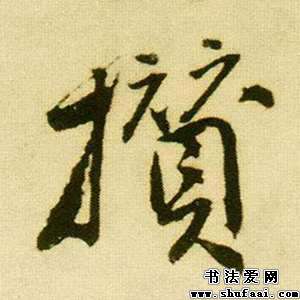 攢
书法爱网
www.shufaai.com